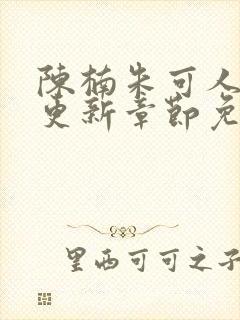 陳楠朱可人
更新章節免
里西可可之子